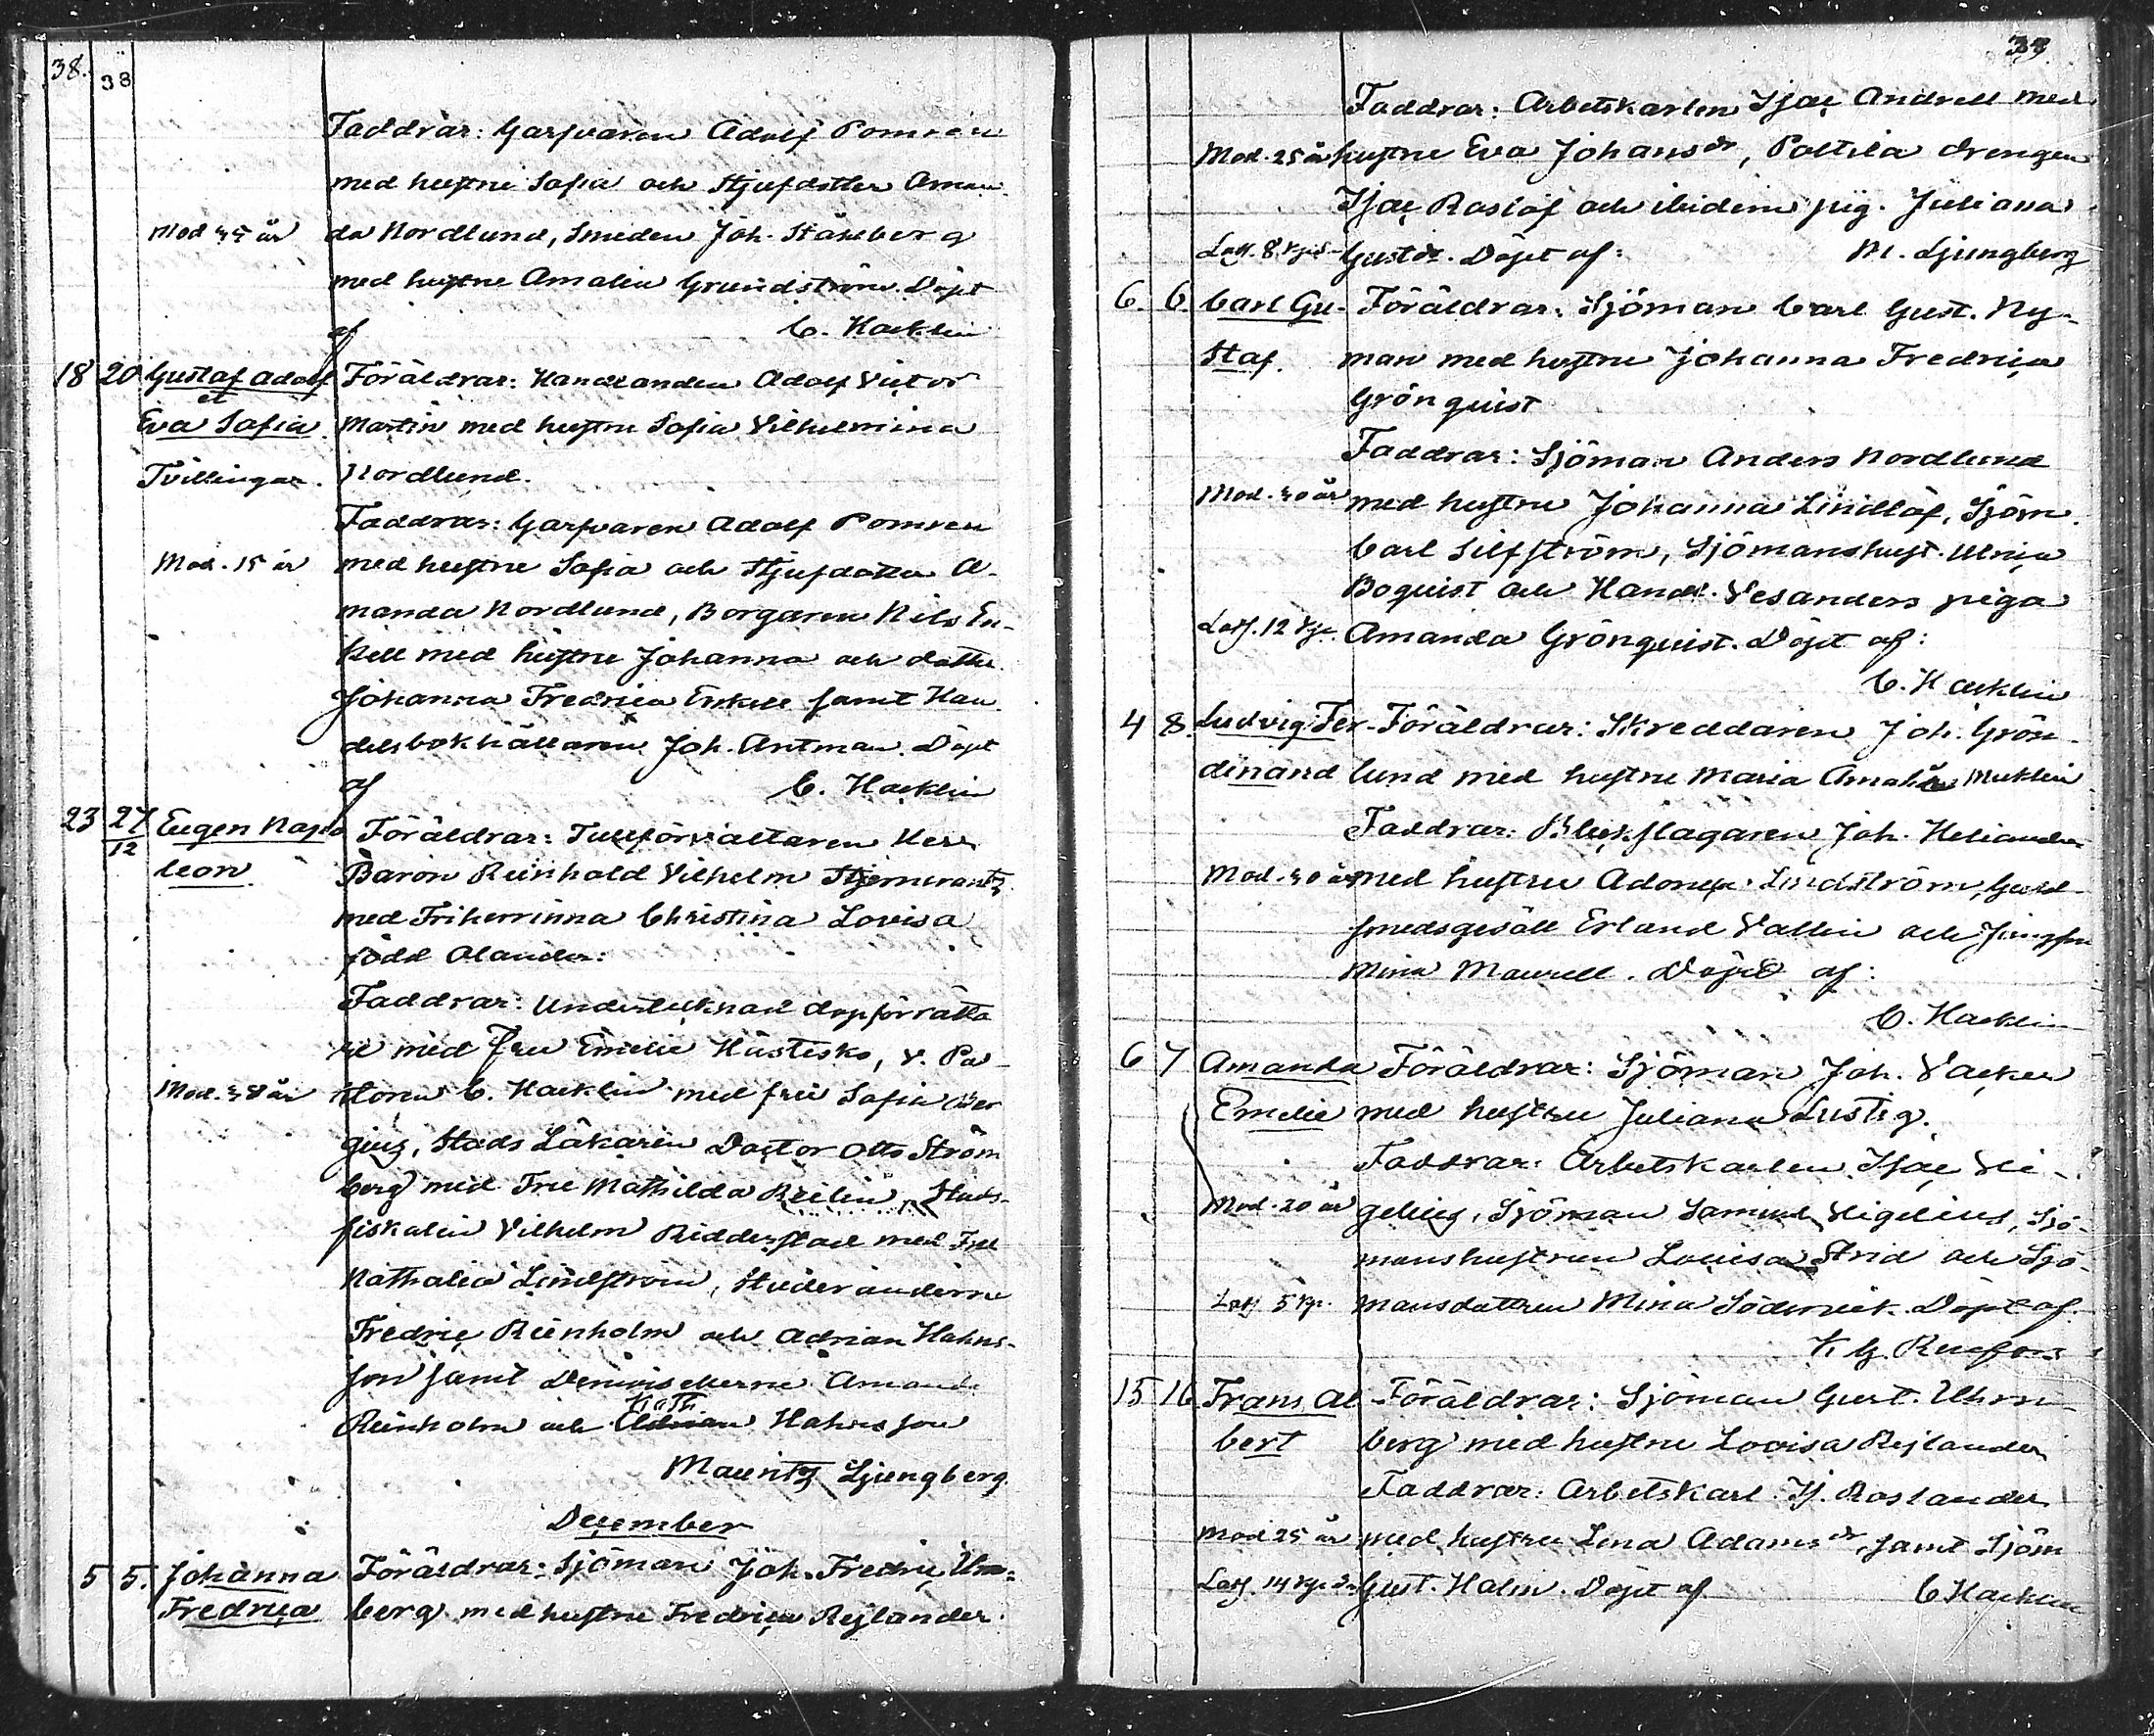 38.
38
Faddrar: Garfvaren Adolf Pomren
med hustru Sofia och Stjufdotter Aman-
Mod 35 år da Nordlund, Smeden Joh. Ståhlberg
med hustru Amalia Grundström. Döpt
af C. Hacklin
18 20 Gustaf Adolf Föräldrar: Handlanden Adolf Victor
et
Eva Sofia Martin med hustru Sofia Vilhelmina
Tvillingar. Nordlund.
Faddrar: Garfvaren Adolf Pomren
Mod. 15 år med hustru Sofia och Stjufdotter A-
manda Nordlund, Borgaren Nils En-
kell med hustru Johanna och dotter
Johanna Fredrica Enkell samt Han-
delsbokhållaren Joh. Antman. Döpt
af C. Hacklin
23 27/12 Eugen Napo- Föräldrar: Tullförvaltaren Herr
leon. Baron Reinhold Vilhelm Stjerncrantz
med Friherrinna Christina Lovisa
född Olander.
Faddrar: Undertecknad dopförrätta
re med Fru Emelie Hästesko, v. Pa-
Mod. 38 år storn C. Hacklin med fru Sofia Ber
gius, Stads Läkaren Doctor Otto Ström
berg med Fru Mathilda Reilin, Stads-
fiskalen Vilhelm Ridderstad med Fru
Nathalia Lindström, Studeranderne
Fredric Reinholm och Adrian Hahns-
son samt Demoisellerne Amanda
Kath.
Reinholm och Hahnsson
Mauritz Ljungberg.
December
5 5. Johanna Föräldrar: Sjöman Joh. Fredric Uhrn-
Fredrica berg med hustru Fredrica Rejlander.
39.
Faddrar: Arbetskarlen Isac Andrell med
Mod. 25 år hustru Eva Johansdr, Poltila drengen
Isac Roslöf och ibidem pig. Juliana
Last. 8 kp. Gustdr. Döpt af: M. Ljungberg
6. 6. Carl Gu- Föräldrar: Sjöman Carl Gust. Ny-
staf. man med hustru Johanna Fredrica
Grönquist
Faddrar: Sjöman Anders Nordlund
Mod. 30 år med hustru Johanna Lindlöf, Sjöm.
Carl Silfström, Sjömanshust. Ulrica
Boquist och Handl. Vesanders piga
12 kp. Amanda Grönquist. Döpt af:
C. Hacklin
4 8. Ludvig Fer- Föräldrar: Skreddaren Joh. Grön-
dinand lund med hustru Maria Amalia Mucklin
Faddrar: Bleckslagaren Joh. Heliander
Mod. 30 år med hustru Lindström, Guld-
smedsgesäll Erland Vallin och Jungfru
Mina Maurell. Döpt af:
C. Hacklin
6 7 Amanda Föräldrar: Sjöman Joh. Vacker
Emelie med hustru Juliana Lustig.
Faddrar: Arbetskarlen Isac Vi-
Mod. 20 år gelius, Sjöman Samuel Vigelius, Sjö-
manshustrun Lovisa Strid och Sjö-
5 kp. mansdottren Mina Södervik. Döpt af.
K. G. Renfors
15 16 Frans Al- Föräldrar: Sjöman Gust. Uhrn-
bert berg med hustru Lovisa Rejlander
Faddrar: Arbetskarl. Is. Roslander
Mod 25 år med hustru Lena Adamsdr, samt Sjöm
14 kp. Gust. Holm. Döpt af C Hacklin